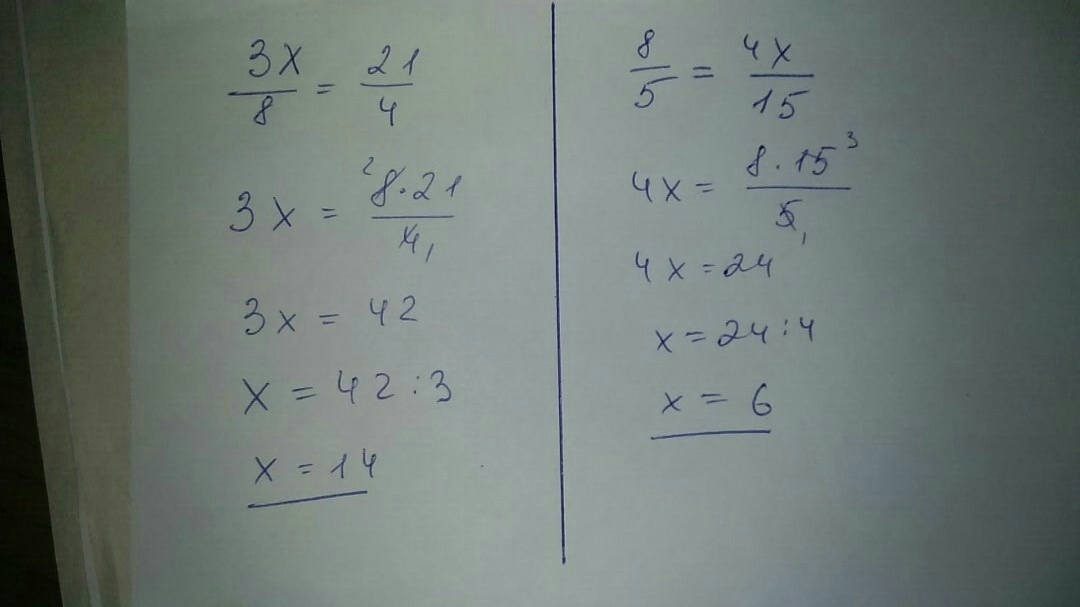 3x/8 = 21/4
3x = ²8·21/4₁
3x = 42
x = 42:3
x = 14
8/5 = 4x/15
4x = 8·15³/5₁
4x = 24
x = 24:4
x = 6